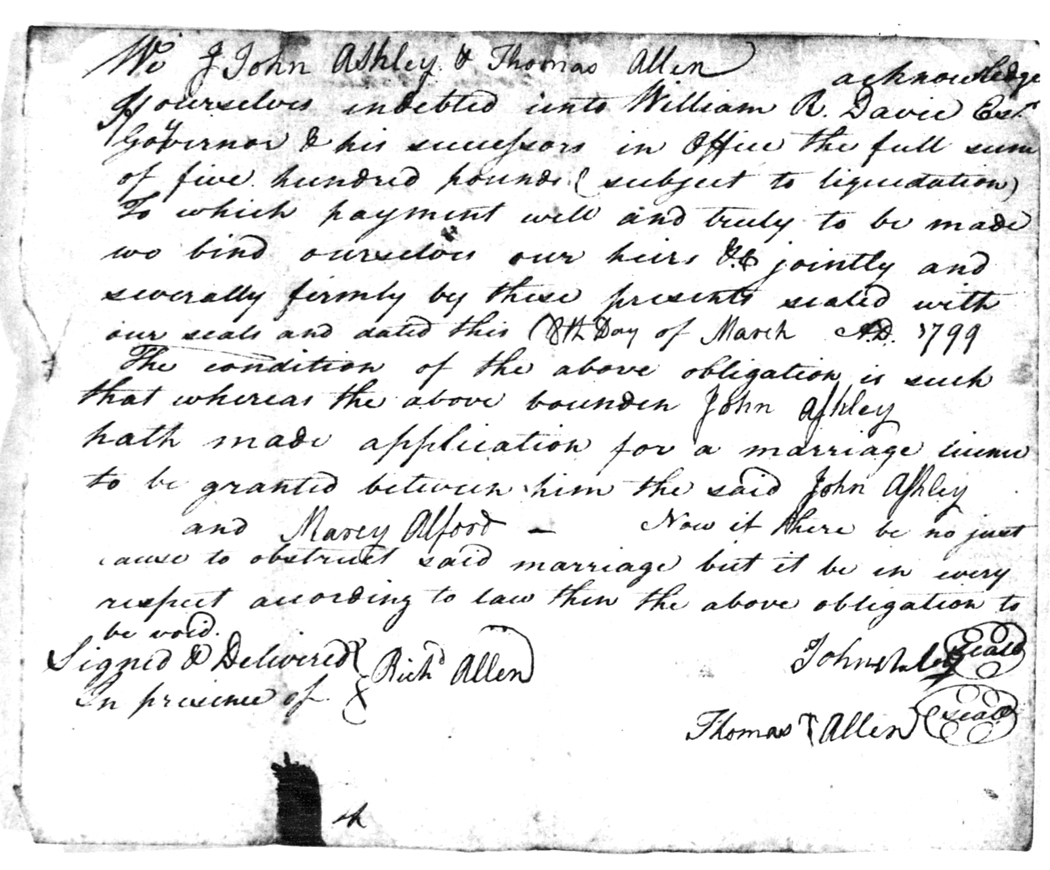 We John Ashley & Thomas Allen acknowledge
ourselves indebted unto William R. Davie Esqr
Governor & his successors in Office the full sum
of five hundred pounds (subject to liquidation)
To which payment well and truly to be made
we bind ourselves our heirs &c jointly and
severally firmly by these presents sealed with
our seals and dated this 8th Day of March A.D. 1799
The condition of the above obligation is such
that whereas the above bounden John Ashley
hath made application for a marriage licence
to be granted between him the said John Ashley
and Marey Alford — Now if there be no just
cause to obstruct said marriage but it be in every
respect according to law then the above obligation to
be void.
Signed & Delivered
In presence of
Richd Allen
John Ashley seal
Thomas Allen seal